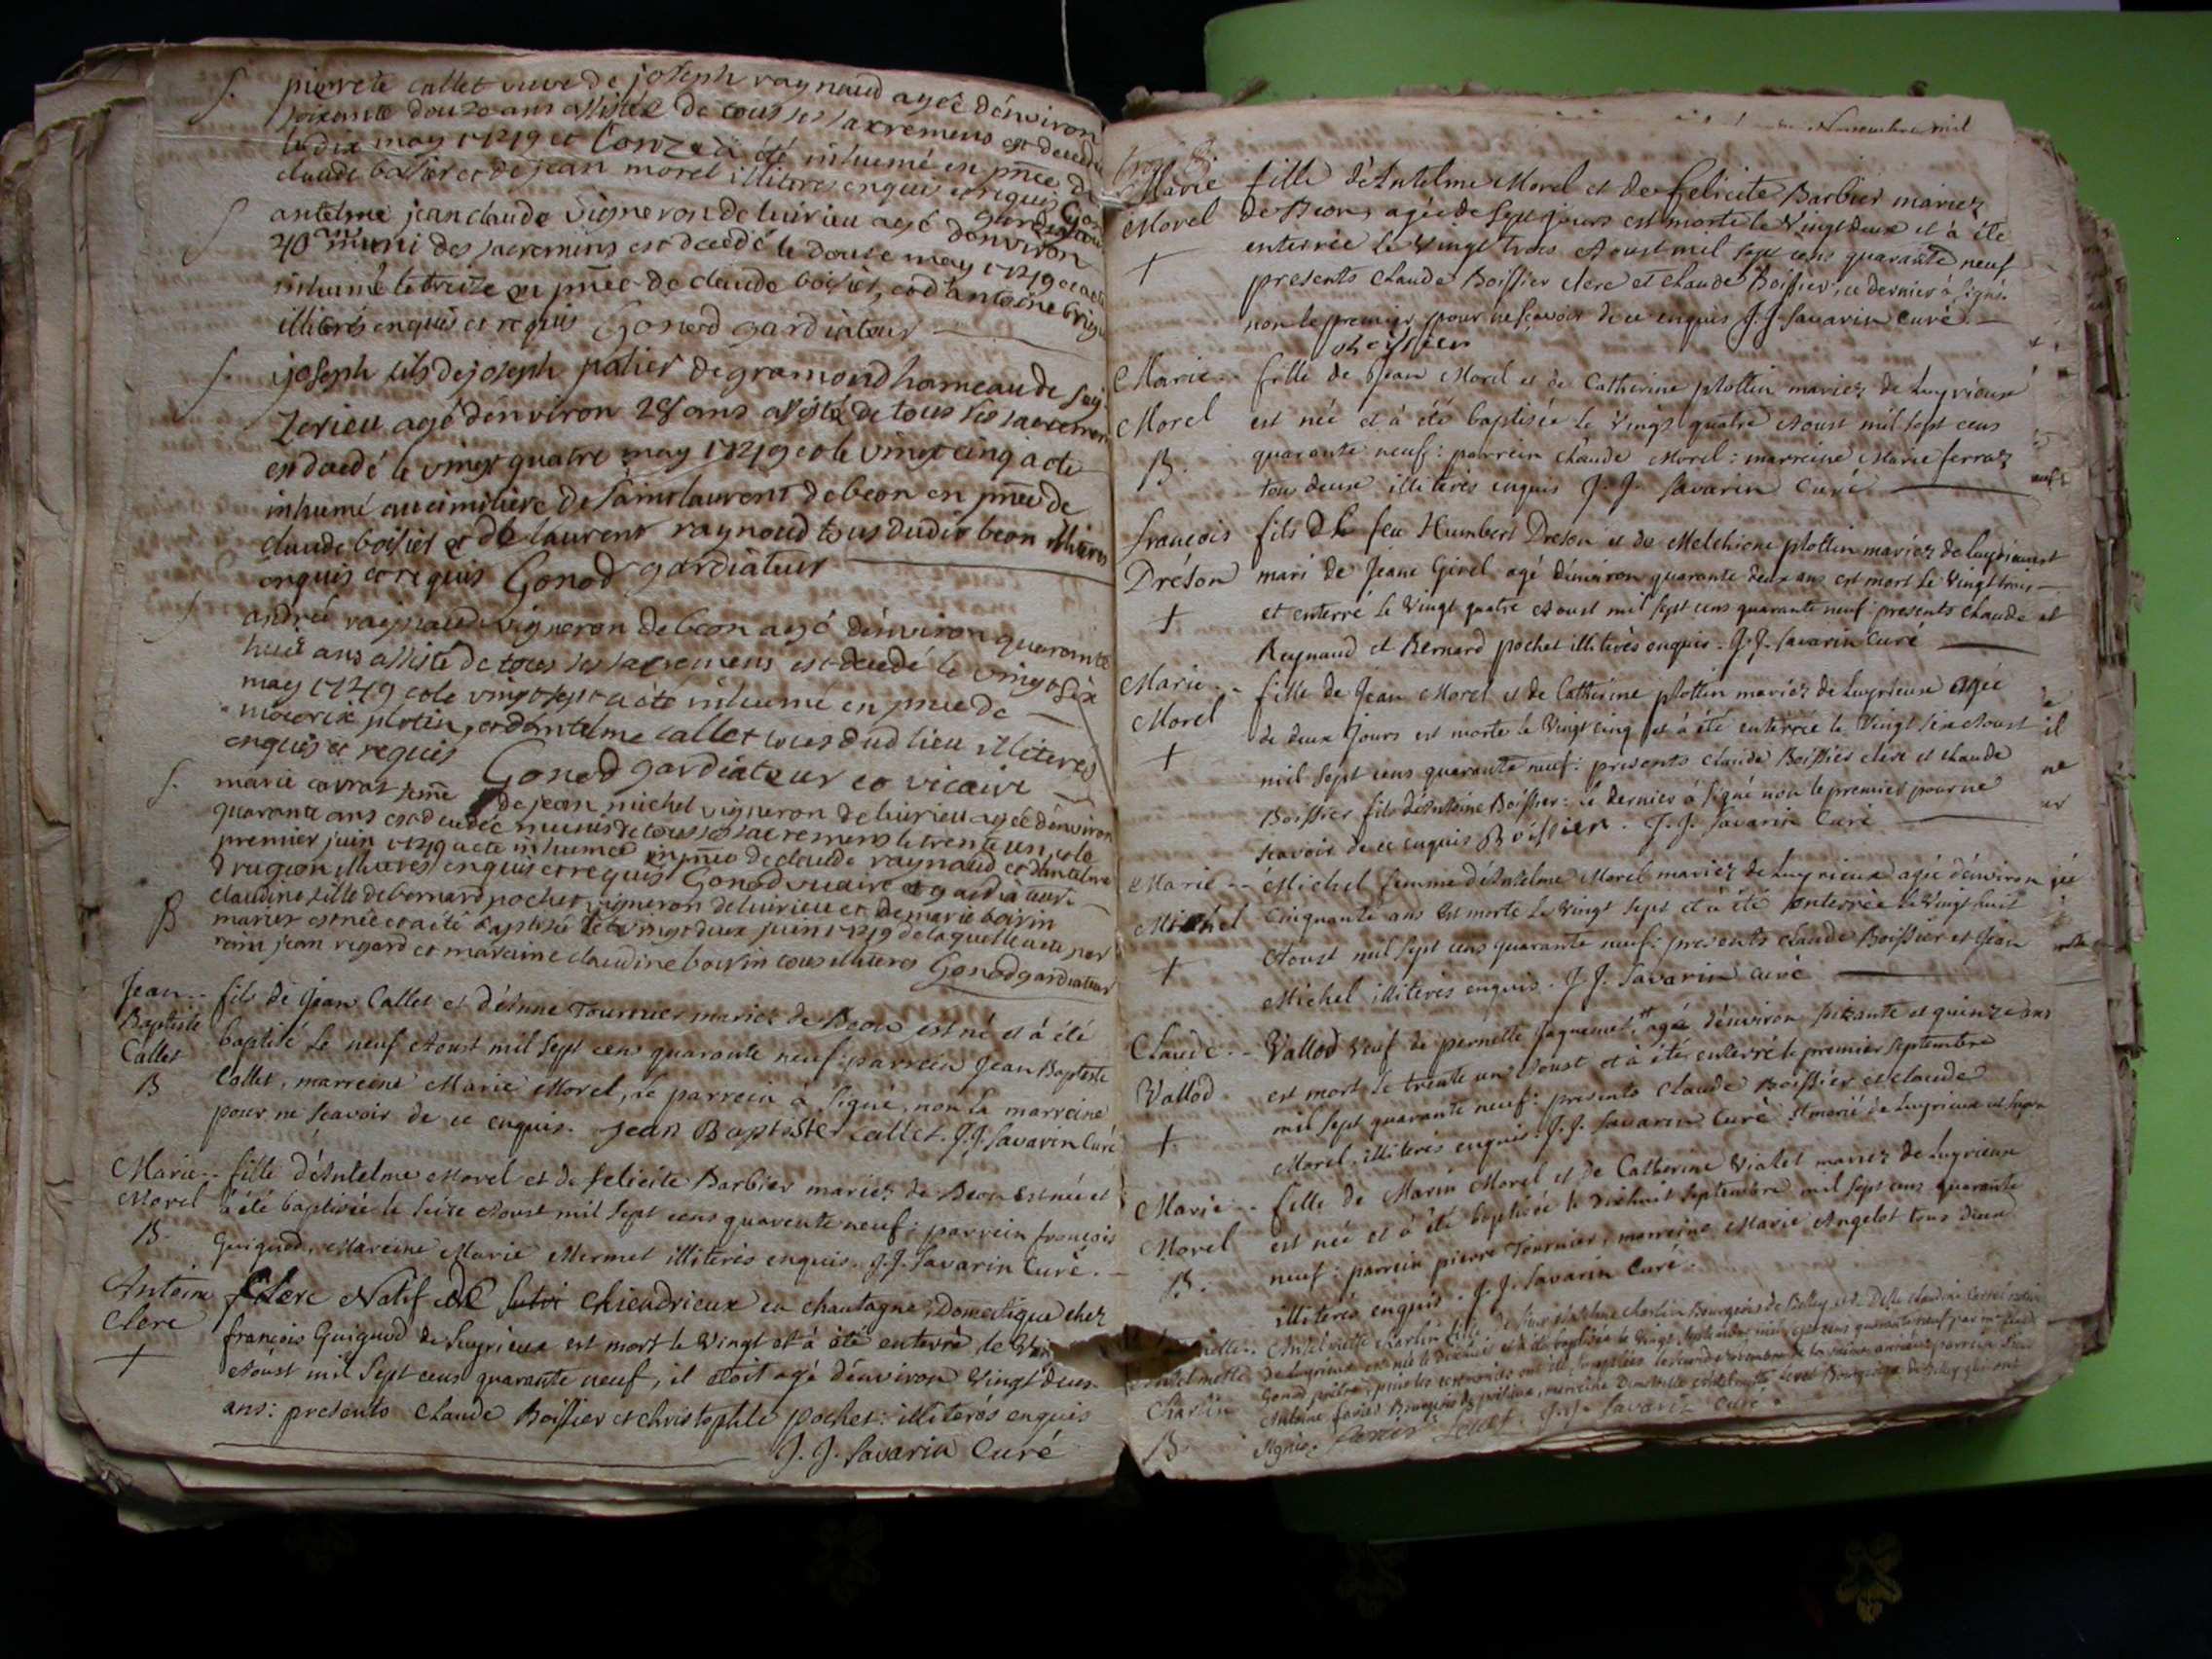 S. pierrete callet veuve de joseph raynaud agée d'environ
soixante douze ans assistée de tous ses sacremens est decedée
le dix may 1749 et l'onze a été inhumé en pnce de
claude boisier et de jean morel illiteres enquis et requis
S antelme jean claude vigneron de luirieu agé d'environ
40 muni des sacremens est decedé le douze may 1749 et a été
inhumé le treize en pnce de claude boisier, et d'antoine
illiterés enquis et requis Gonod gardiateur
S. joseph fils de joseph palier de gramond hameau de
agé d'environ 28 ans assisté de tous ses sacremen
est decedé le vingt quatre may 1749 et le vingt cinq a été
inhumé au cimitiere de saint laurent de beon en pnce de
claude boisier et de laurent raynaud tous dudit beon illiteres
enquis et requis Gonod gardiateur
S andré raynaud vigneron de beon agé d'environ quarante
huit ans assisté de tous ses sacremens est decedé le vingt six
may 1749 et le vingt sept a été inhumé en pnce de
plotin, et d'antelme callet tous dud lieu illiterés
enquis et requis Gonod gardiateur et vicaire
S. marie corrat fme de jean michel vigneron de luirieu agée d'environ
quarante ans est decedée munie de tous ses sacremens le trente un, et le
premier juin 1749 a été inhumée en pnce de claude raynaud et d'antelme
drugeon illiterés enquis et requis Gonod vicaire et gardiateur
claudine fille de bernard pochet vigneron de luirieu et de marie boivin
B mariés est née et a été baptisée le vingt deux juin 1749 de laquelle a été par
rain jean regard et maraine claudine boivin tous illiteres Gonod gardiateur
Jean -- fils de Jean Callet et d'Anne Tournier mariez de Beon est né et à été
Baptiste baptisé Le neuf Aoust mil sept cens quarante neuf parrein Jean Baptiste
Callet Callet, marreine Marie Morel, le parrein à signé, non la marreine
B pour ne scavoir de ce enquis. Jean Baptiste Callet. J.J. Savarin Curé
Marie -- fille d'Antelme Morel et de felicite Barbier mariez de Beon est née et
Morel à été baptisée le seize Aoust mil sept cens quarente neuf : parrein francois
B. Guigued, Mareine Marie Mermet illiterés enquis. J.J. Savarin Curé.
Antoine Clerc Natif de Chiendrieux en chautagne, Domestique chez
Clerc francois Guigued de Luyrieux est mort le Vingt et à été enterré le
+ Aoust mil Sept cens quarante neuf, il étoit agé d'environ Vingt deux
ans : presents Claude Boissier et christophle pochet : illiterés enquis
J. J. Savarin Curé
Novembre mil
Marie fille d'Antelme Morel et de felicite Barbier mariez
Morel de Beon, agée de sept jours est morte le Vingt deux et à été
+ enterrée le Vingt trois Aoust mil sept cens quarante neuf
presents Claude Boissier clerc et Claude Boissier, ce dernier à signé
non le premier pour ne scavoir de ce enquis J. J. Savarin Curé.
boissier
Marie -- fille de Jean Morel et de Catherine plottin mariez de Luyrieux
Morel est née et à été baptisée le Vingt quatre Aoust mil sept cens
B. quarante neuf : parrein Claude Morel : marreine Marie ferraz
tou deux illiterés enquis J. J. Savarin Curé
francois fils de feu Humbert Dreson et de Melchione plottin mariez de Luyrieux et
Dréson mari de Jeane Girel agé d'environ quarante deux ans est mort le Vingt trois
+ et enterré le Vingt quatre Aoust mil sept cens quarante neuf presents Claude et
Reynaud et Bernard pochet illiterés enquis. J. J. Savarin Curé
Marie -- fille de Jean Morel et de Catherine plottin mariez de Luyrieux agée
Morel de deux jours est morte le Vingt cinq et à été enterrée le Vingt six Aoust
+ mil sept cens quarante neuf : presents Claude Boissier clerc et Claude
Boissier fils d'Antoine Boissier : le dernier à signé non le premier pour ne
scavoir de ce enquis Boissier. J. J. Savarin Curé
Marie -- Michel femme d'Antelme Morel mariez de Luyrieux agée d'environ
Michel Cinquante ans est morte Le Vingt sept et à été enterrée le Vingt huit
+ Aoust mil sept cens quarante neuf : presents Claude Boissier et Jean
Michel illiterés enquis. J. J. Savarin Curé
Claude -- Vallod Veuf de pernette Jaquemet agé d'environ soixante et quinze ans
Vallod est mort Le trente un Aoust et à été enterré le premier septembre
+ mil sept quarante neuf : presents Claude Boissier et Claude
Morel, illiterés enquis. J. J. Savarin Curé # marié de Luyrieux
Marie -- fille de Marin Morel et de Catherine Vialet mariez de Luyrieux
Morel est née et à été baptisée le Dixhuit Septembre mil sept cens quarante
B. neuf : parrein pierre Tournier, marreine Marie Angelot tous deux
illiterés enquis. J. J. Savarin Curé.
Antelmette Charlin fille de Sieur Antelme Charlin Bourgeois de Belley et de Delle Claudine
Antelmette de Luyrieux est née le Dixhuit et à été baptisée le Vingt Septembre mil sept cens quarante neuf par
Charlin Gonod prêtre, puis les ceremonies ont été le second Novembre de la même année parrein Sieur
B. Antoine favier Bourgeois de marreine Demoiselle Antelmette Bourgeoise de Belley qui ont
signé. favier J. J. Savarin Curé.